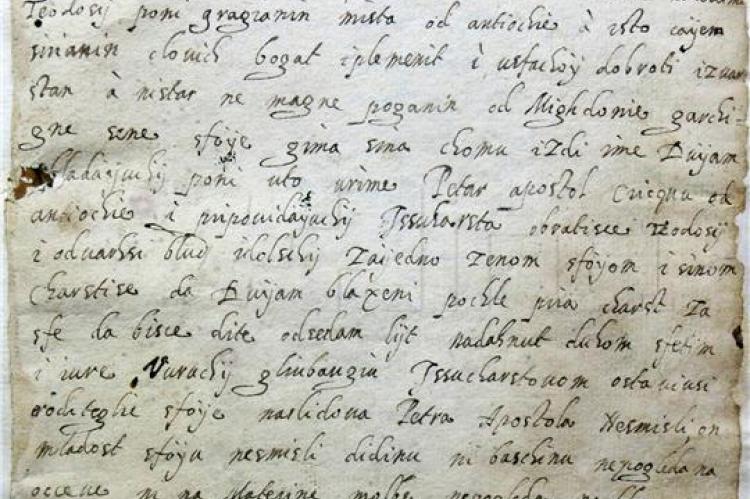 Teodosij poni gragianin mista od antiochie à isto cayem
sinianin clovich bogat iplemenit i usfachoy dobroti izvar
stan à nistar ne magne poganin od Mighdonie garchi-
gne xene sfoje gima sina chomu izdi ime Duyam
obladayuchij poni uto urime Petar apostol Cricqvu od
antiochie i pripovidayuchij Issucharsta obratisce Teodosij
i oduarhsi blud idolschij zajedno zenom sfoyom i sinom
charstise da Duijam blaxeni pochle pria charst za
sfe da bisce dite odsedam lijt nadahnut duhom sfetim
i iure Vuruchij gliubauziu Issucharstovom ostaviusi
roditeglie sfoje naslidova Petra Apostola Nesmisli on
mladost sfoyu nesmisli didinu ni baschinu nepogleda na
occeve ni na Materine molbe nepogleda na